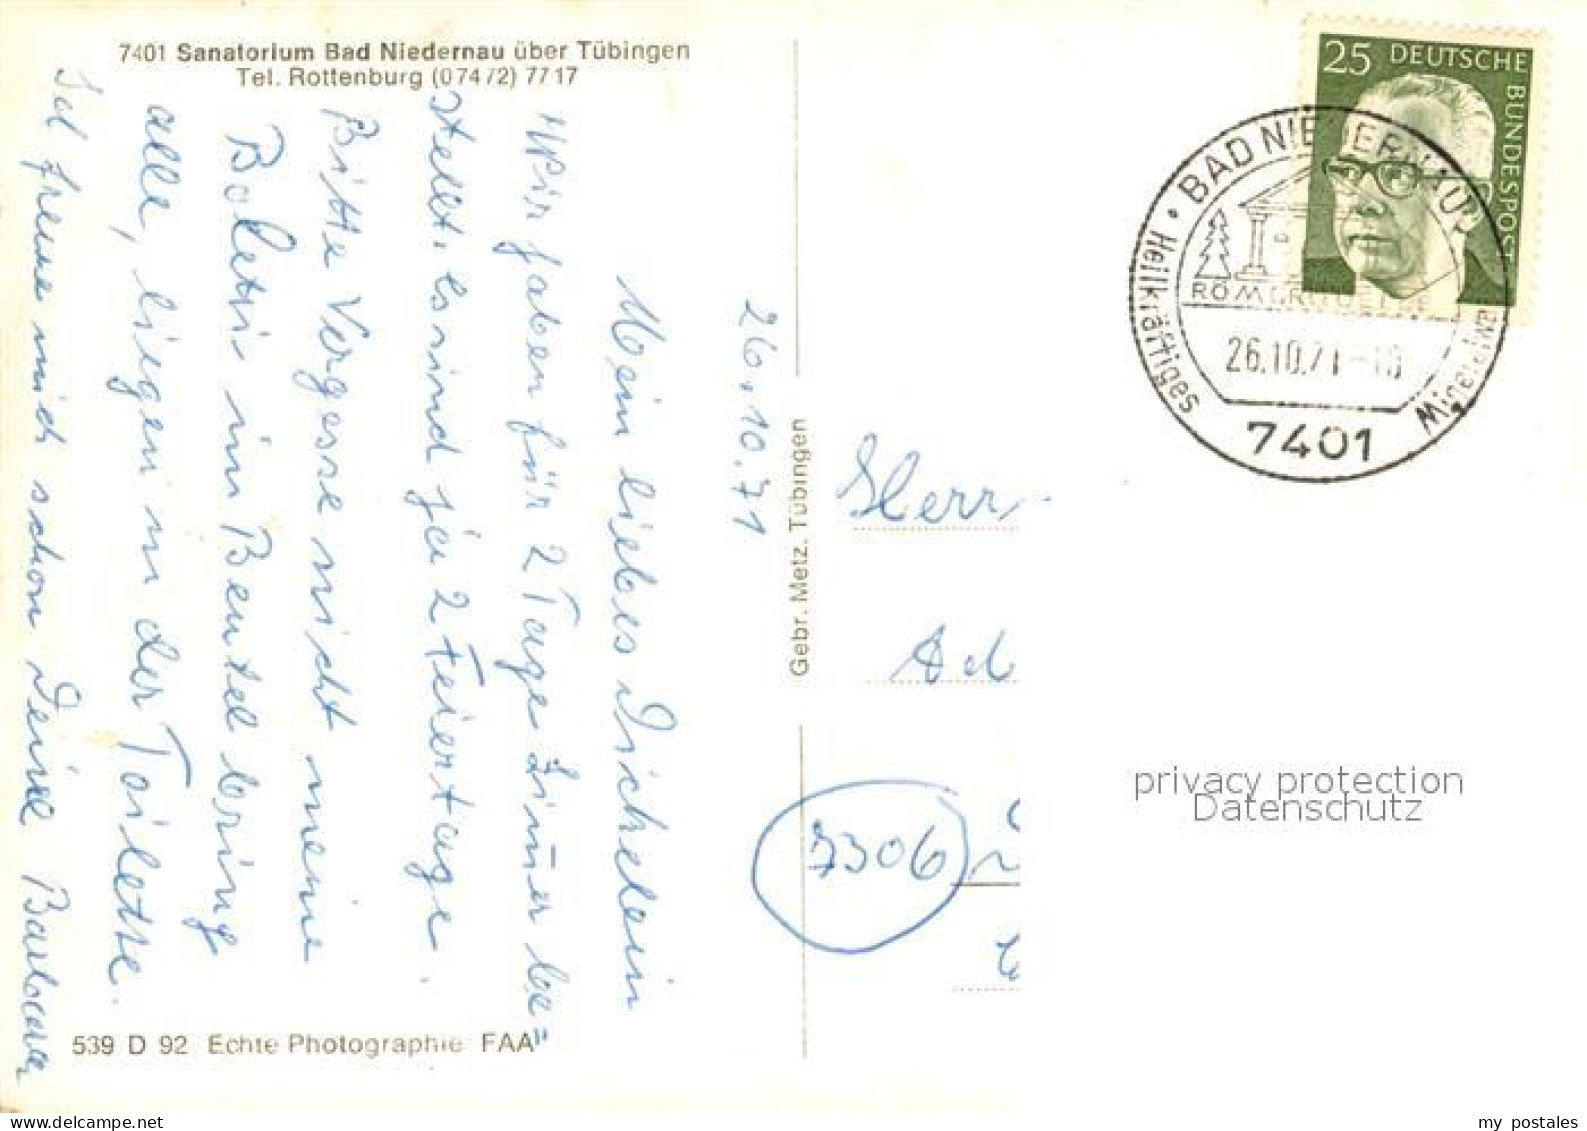 7401 Sanatorium Bad Niedernau über Tübingen
Tel. Rottenburg (07472) 7717
26.10.71
Mein liebes
Wir haben für 2 Tage Zimer be=
stellt. Es sind ja 2 Feiertage.
Bitte Vergesse nicht meine
im Beutel bring
alle, liegen in der Toilette.
Ich freue mich schon Deine Barbara
539 D 92 Echte Photographie FAA
Gebr. Metz. Tübingen
25 DEUTSCHE BUNDESPOST
BAD NIEDERNAU
Heilkräftiges
RÖMERQUELLE
26.10.71-10
7401
Herr
Ad
7306
privacy protection
Datenschutz
my postales